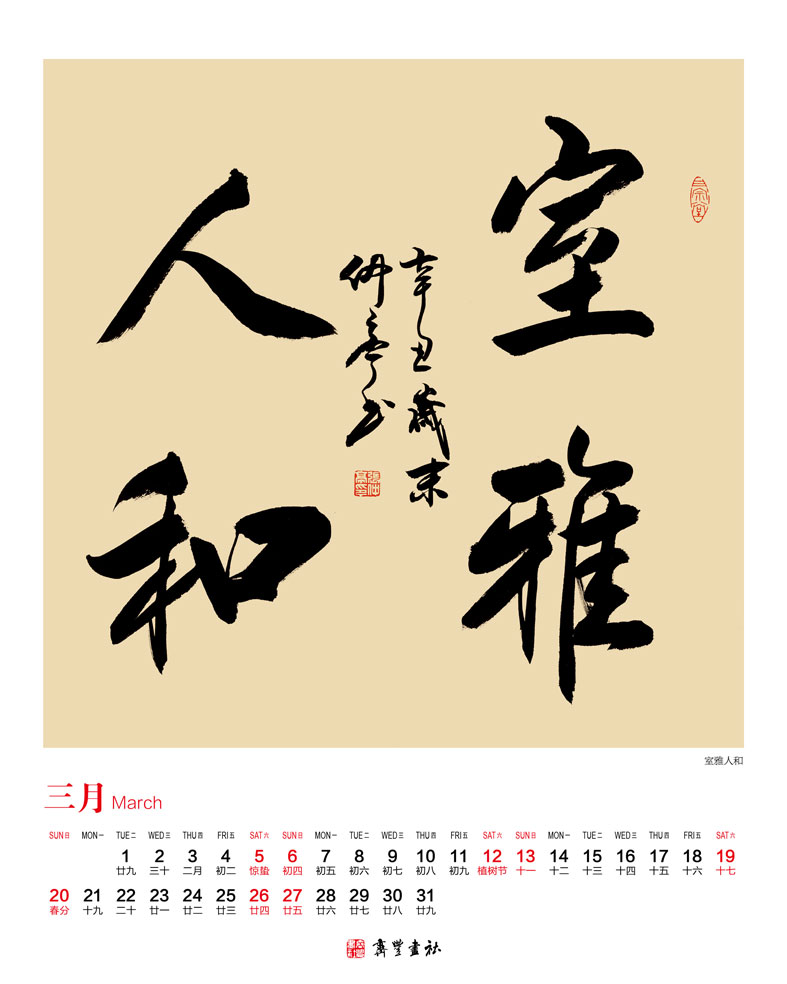 室雅
人和
辛丑歲末
仲亭书
室雅人和
三月 March
SUN日 MON一 TUE二 WED三 THU四 FRI五 SAT六 SUN日 MON一 TUE二 WED三 THU四 FRI五 SAT六 SUN日 MON一 TUE二 WED三 THU四 FRI五 SAT六
1 2 3 4 5 6 7 8 9 10 11 12 13 14 15 16 17 18 19
廿九 三十 二月 初二 惊蛰 初四 初五 初六 初七 初八 初九 植树节 十一 十二 十三 十四 十五 十六 十七
20 21 22 23 24 25 26 27 28 29 30 31
春分 十九 二十 廿一 廿二 廿三 廿四 廿五 廿六 廿七 廿八 廿九
齊豐畫社